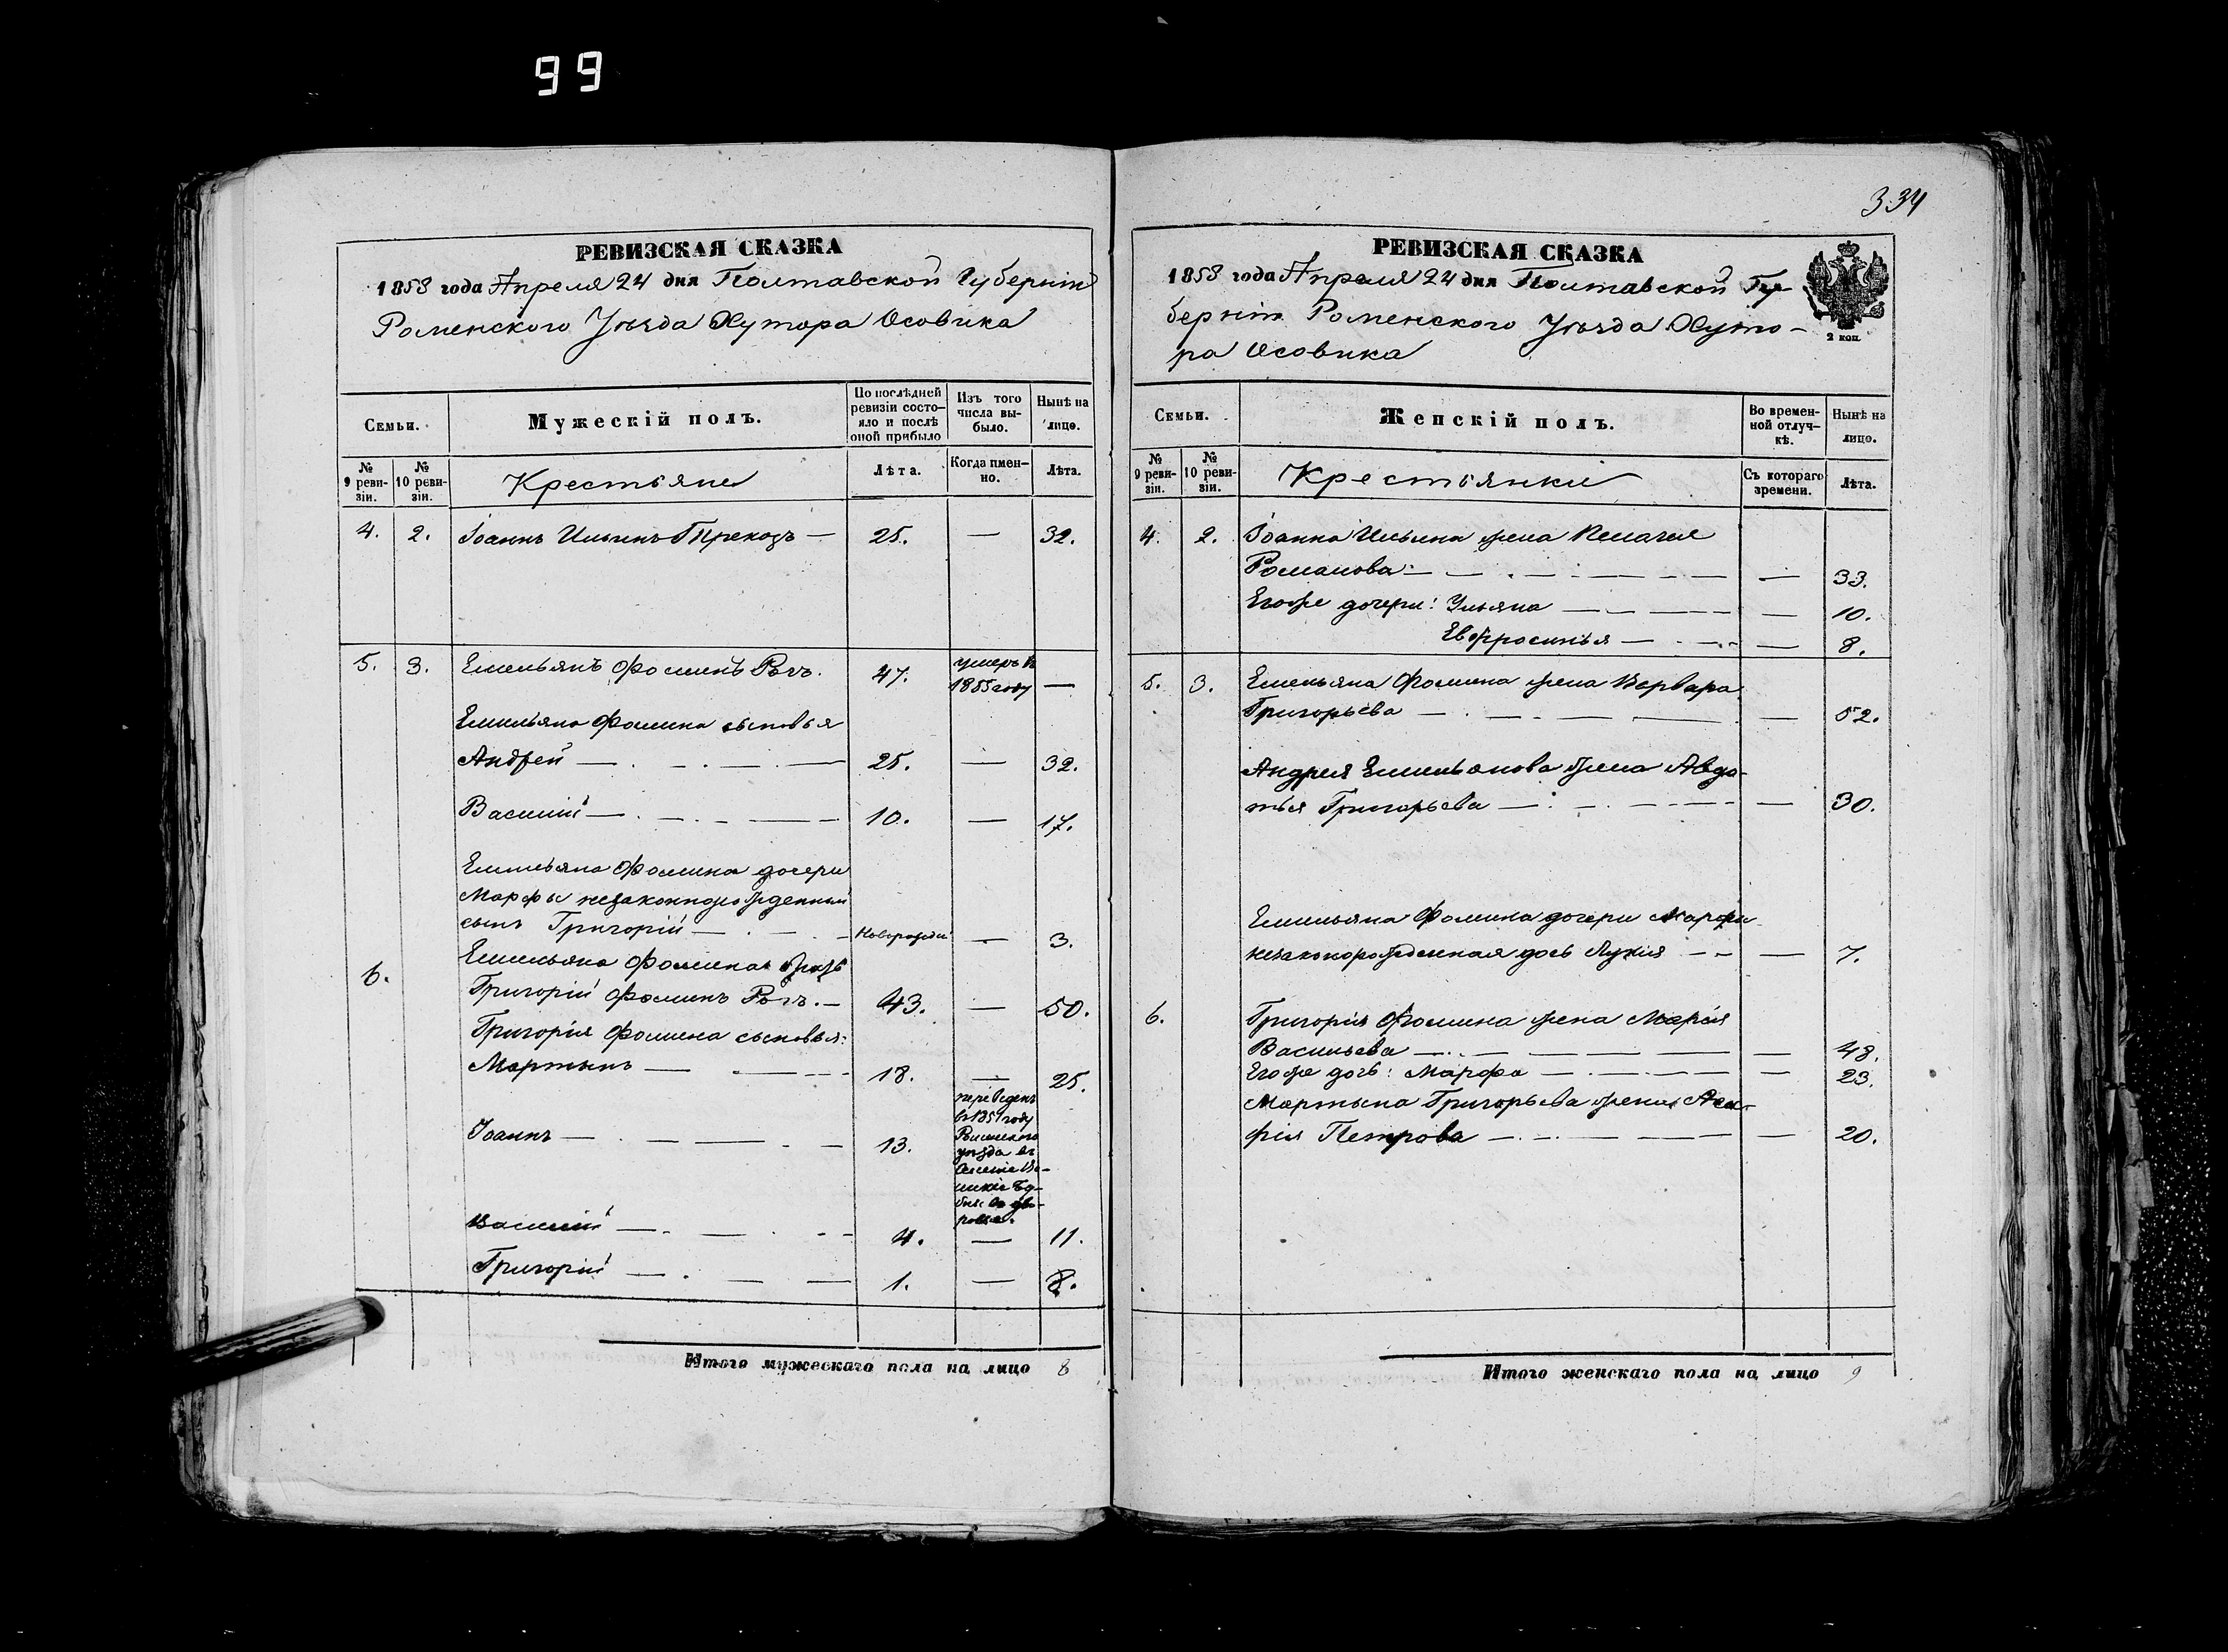 99
334
РЕВИЗСКАЯ СКАЗКА
1858 года Апреля 24 дня Полтавской Губерніи
Роменского Уѣзда Хутора Осовика
Семьи.
Мужескій полъ.
По послѣдней ревизіи состояло и послѣ оной прибыло
Изъ того числа выбыло.
Нынѣ на лицо.
№ 9 ревизіи.
№ 10 ревизіи.
Крестьяне
Лѣта.
Когда имен-но.
Лѣта.
4. 2. Іоаннъ Ильинъ — 25. — 32.
5. 3. Емельянъ Фоминъ 47. умеръ въ 1855 году —
Емельяна Фомина сыновья
Андрей — 25. — 32.
Василій — 10. — 17.
Емельяна Фомина дочери
Марфы незаконнорожденный
сынъ Григорій — — 3.
6. Емельяна Фомина братъ
Григорій Фоминъ — 43. — 50.
Григорія Фомина сыновья:
Мартынъ — 18. — 25.
Іоаннъ — 13. переведенъ
году
уѣзда въ
Василій — 4. — 11.
Григорій — 1. — 8.
Итого мужескаго пола на лицо 8
РЕВИЗСКАЯ СКАЗКА
1858 года Апреля 24 дня Полтавской Гу-
берніи Роменского Уѣзда Хуто-
ра Осовика
2 коп.
Семьи.
Женскій полъ.
Во времен-ной отлуч-кѣ.
Нынѣ на лицо.
№ 9 реви-зіи.
№ 10 реви-зіи.
Крестьянки
Съ котораго времени.
Лѣта.
4. 2. Іоанна Ильина жена Пелагея
Романова — — 33.
Егоже дочери: Ульяна — — 10.
Евфросинья — — 8.
5. 3. Емельяна Фомина жена Варвара
Григорьева — — 52.
Андрея Емельянова жена Авдо-
тья Григорьева — — 30.
Емельяна Фомина дочери Марфы
незаконорожденная дочь — — 7.
6. Григорія Фомина жена Марія
Васильева — — 48.
Егоже дочь: Марфа — — 23.
Мартына Григорьева жена
Петрова — — 20.
Итого женскаго пола на лицо 9